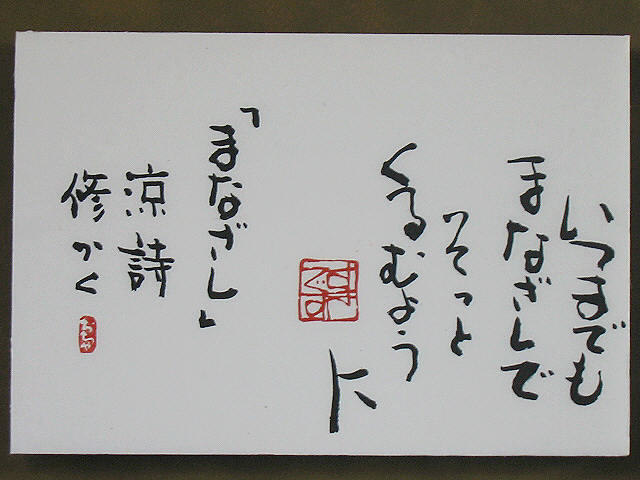 いつまでも
まなざしで
そっと
くるむよう
に
「まなざし」
涼 詩
修 かく